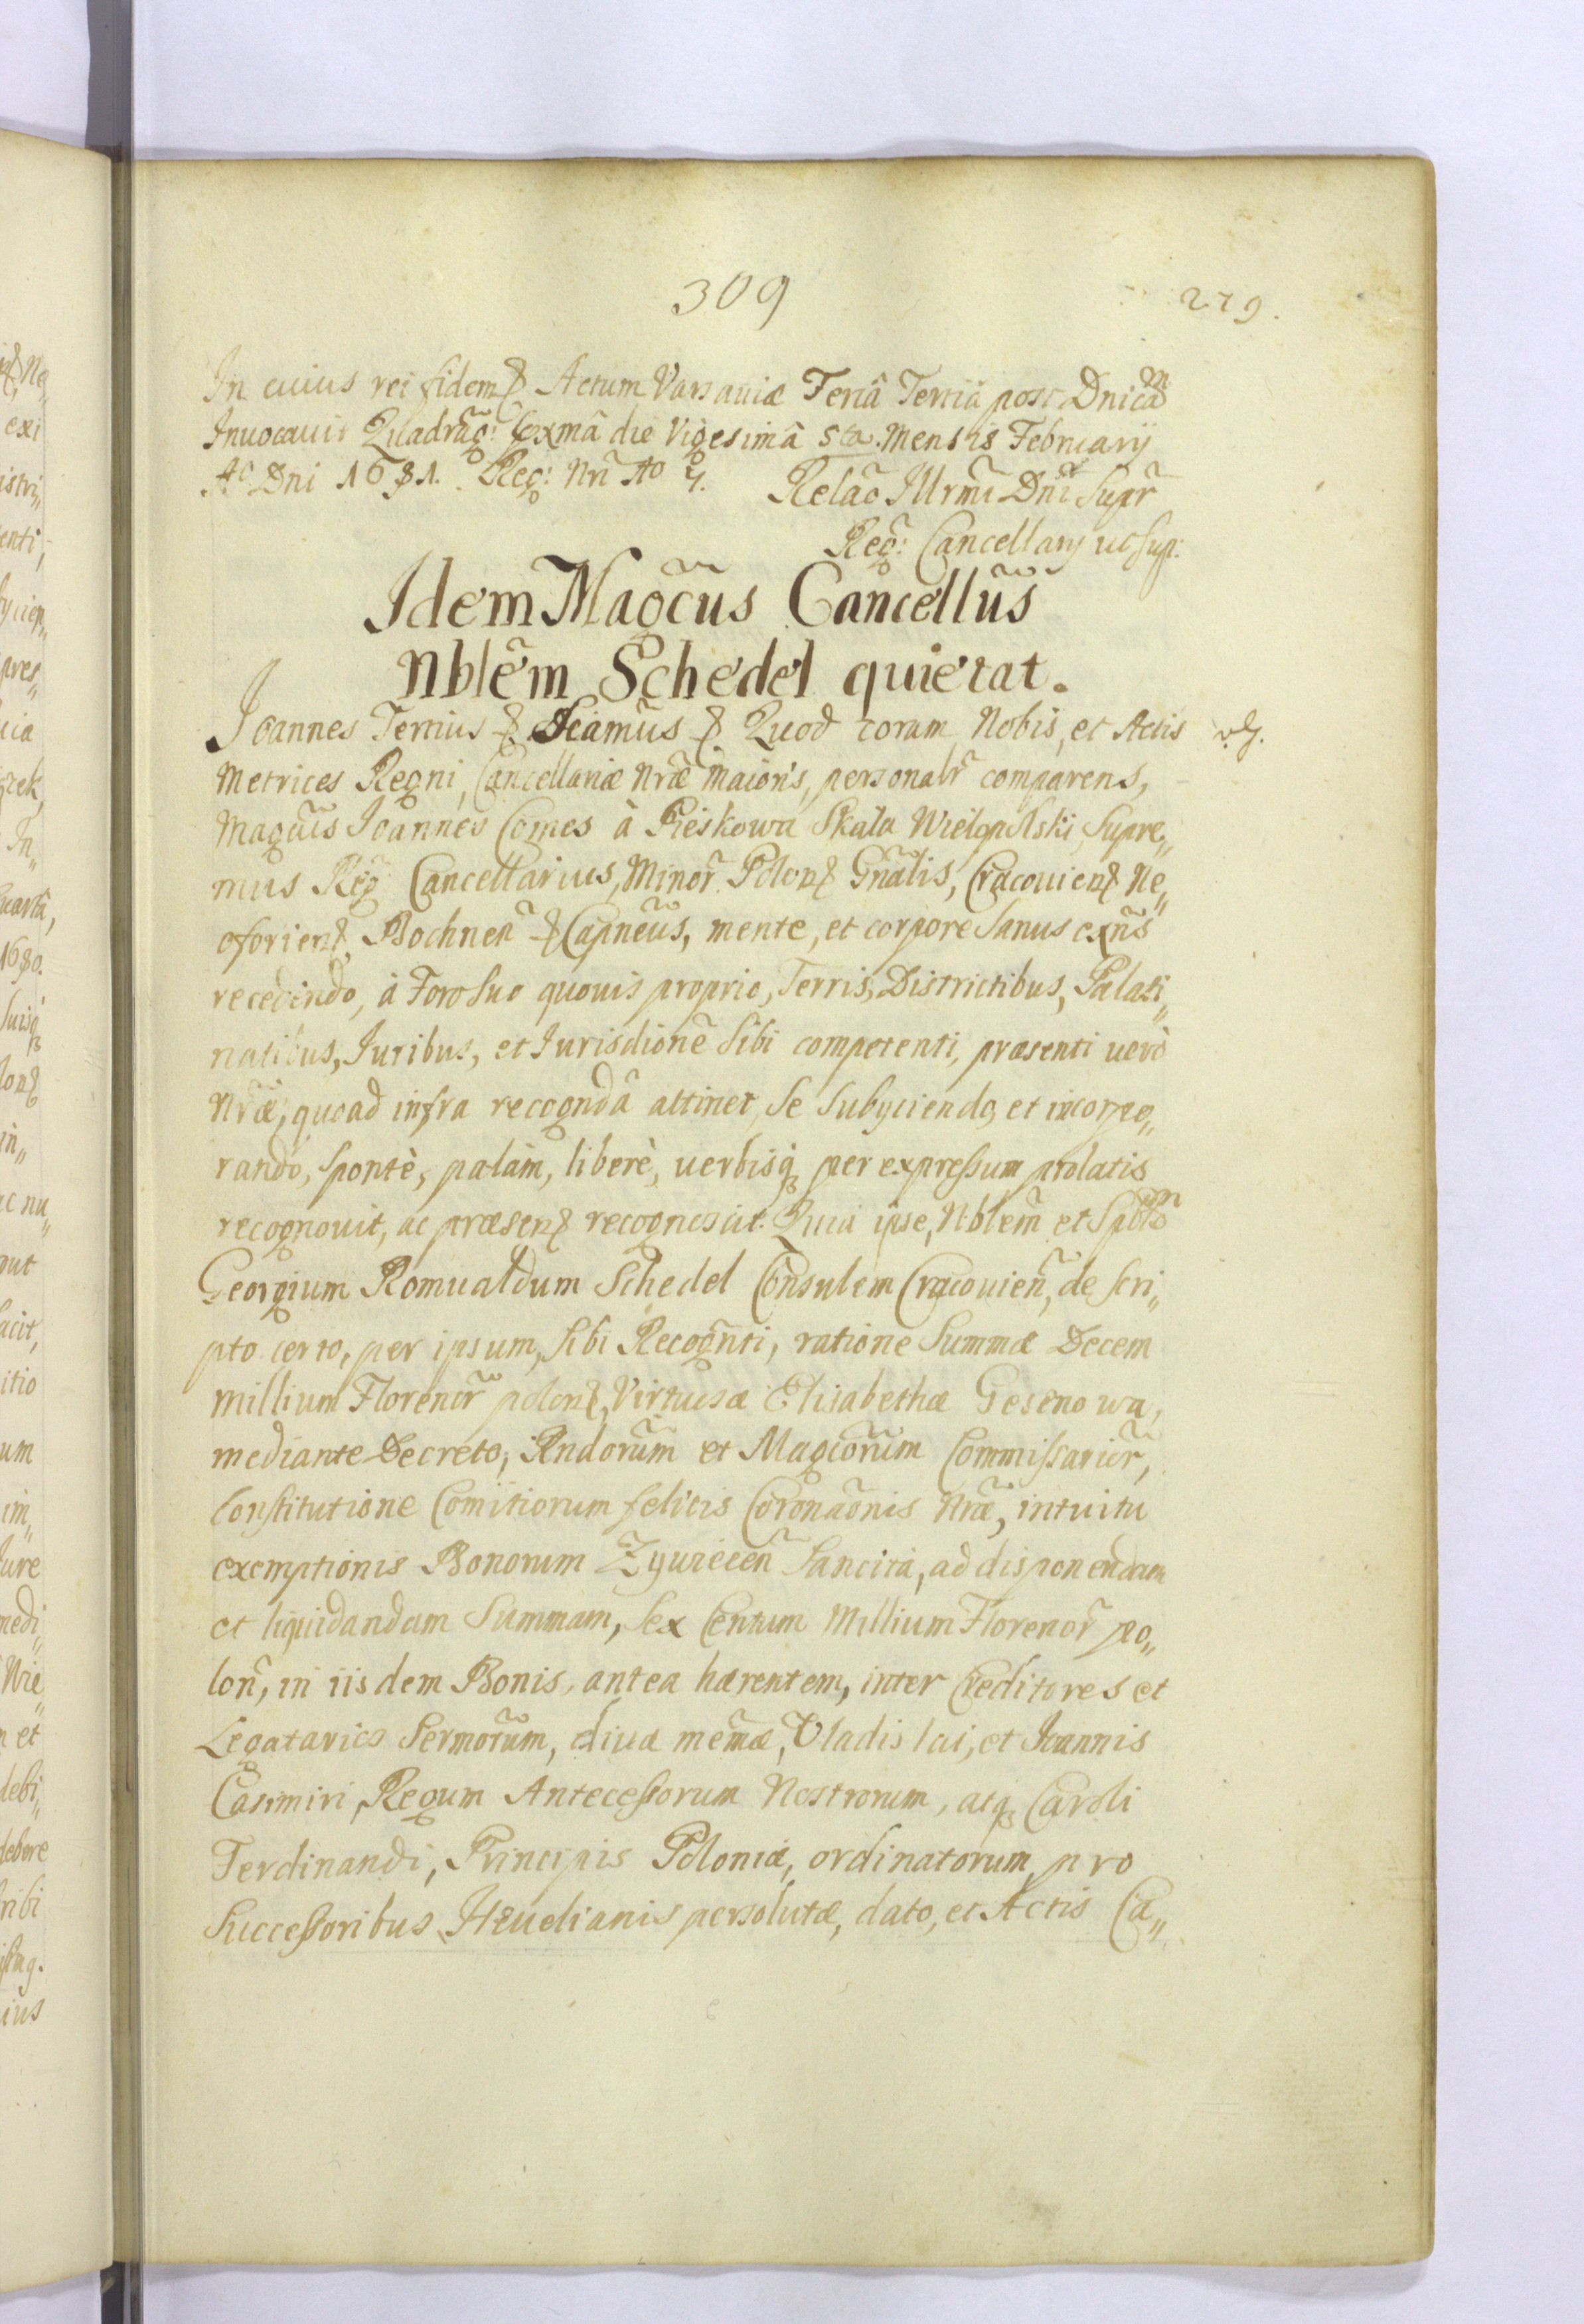 309
279.
In cuius rei fidem & Actum Varsauiæ Feriâ Tertiâ post Dnicãm
Inuocauit Quadrãg: Sexmâ die Vigesimâ 5ta. Mensis February
Ao Dni 1681. Reg: Nrĩ Ao 7. Relão Illrmĩ Dnĩ Supr̃
Reg: Cancellary ut sup:
Idem Magc̃us Cancellũs
Nblẽm Schedel quietat.
Joannes Tertius & Sciamus & Quod coram Nobis, et Actis
Metrices Regni, Cancellariæ Nræ̃ Maioris, personalr̃ comparens,
Magcũs Joannes Comes à Pieskowa Skala Wielopolski, Supre„
mus Reg̃ Cancellarius, Minor̃ Polon& Gñalis, Cracouien& Ne„
oforien&, Bochneñ & Capneũs, mente, et corpore sanus exñs
recedendo, à Foro suo quouis proprio, Terris, Districtibus, Palati„
natibus, Juribus, et Jurisdionẽ sibi competenti, præsenti uerò
Nræ̃, quoad infra recogndâ attinet, se subyciendo, et incorpo„
rando, spontè, palàm, liberè, uerbisq; per expressum prolatis
recognouit, ac præsen& recognoscit. Quia ipse, Nblem̃ et Spblẽm
Georgium Romualdum Schedel Consulem Cracouieñ, de scri„
pto certo, per ipsum, sibi Recogñti, ratione Summæ Decem
millium Florenor̃ polon&, Virtuosæ Elisabethæ Gesenowa,
mediante Decreto, Rndorũm et Magcorũm Commissarior̃,
Constitutione Comitiorum felicis Coronaõnis Nræ̃, intuitu
exemptionis Bonorum Zywieceñ sancita, ad disponendam
et liquidandam Summam, sex Centum Millium Florenor̃ po„
loñ, in iisdem Bonis, antea hærentem, inter Creditores et
Legatarios Sermorũm, diuæ memæ̃, Vladislai, et Joannis
Casimiri, Regum Antecessorum Nostrorum, atq; Caroli
Ferdinandi, Principis Poloniæ, ordinatorum, pro
Successoribus persolutæ, dato, et Actis Ca„